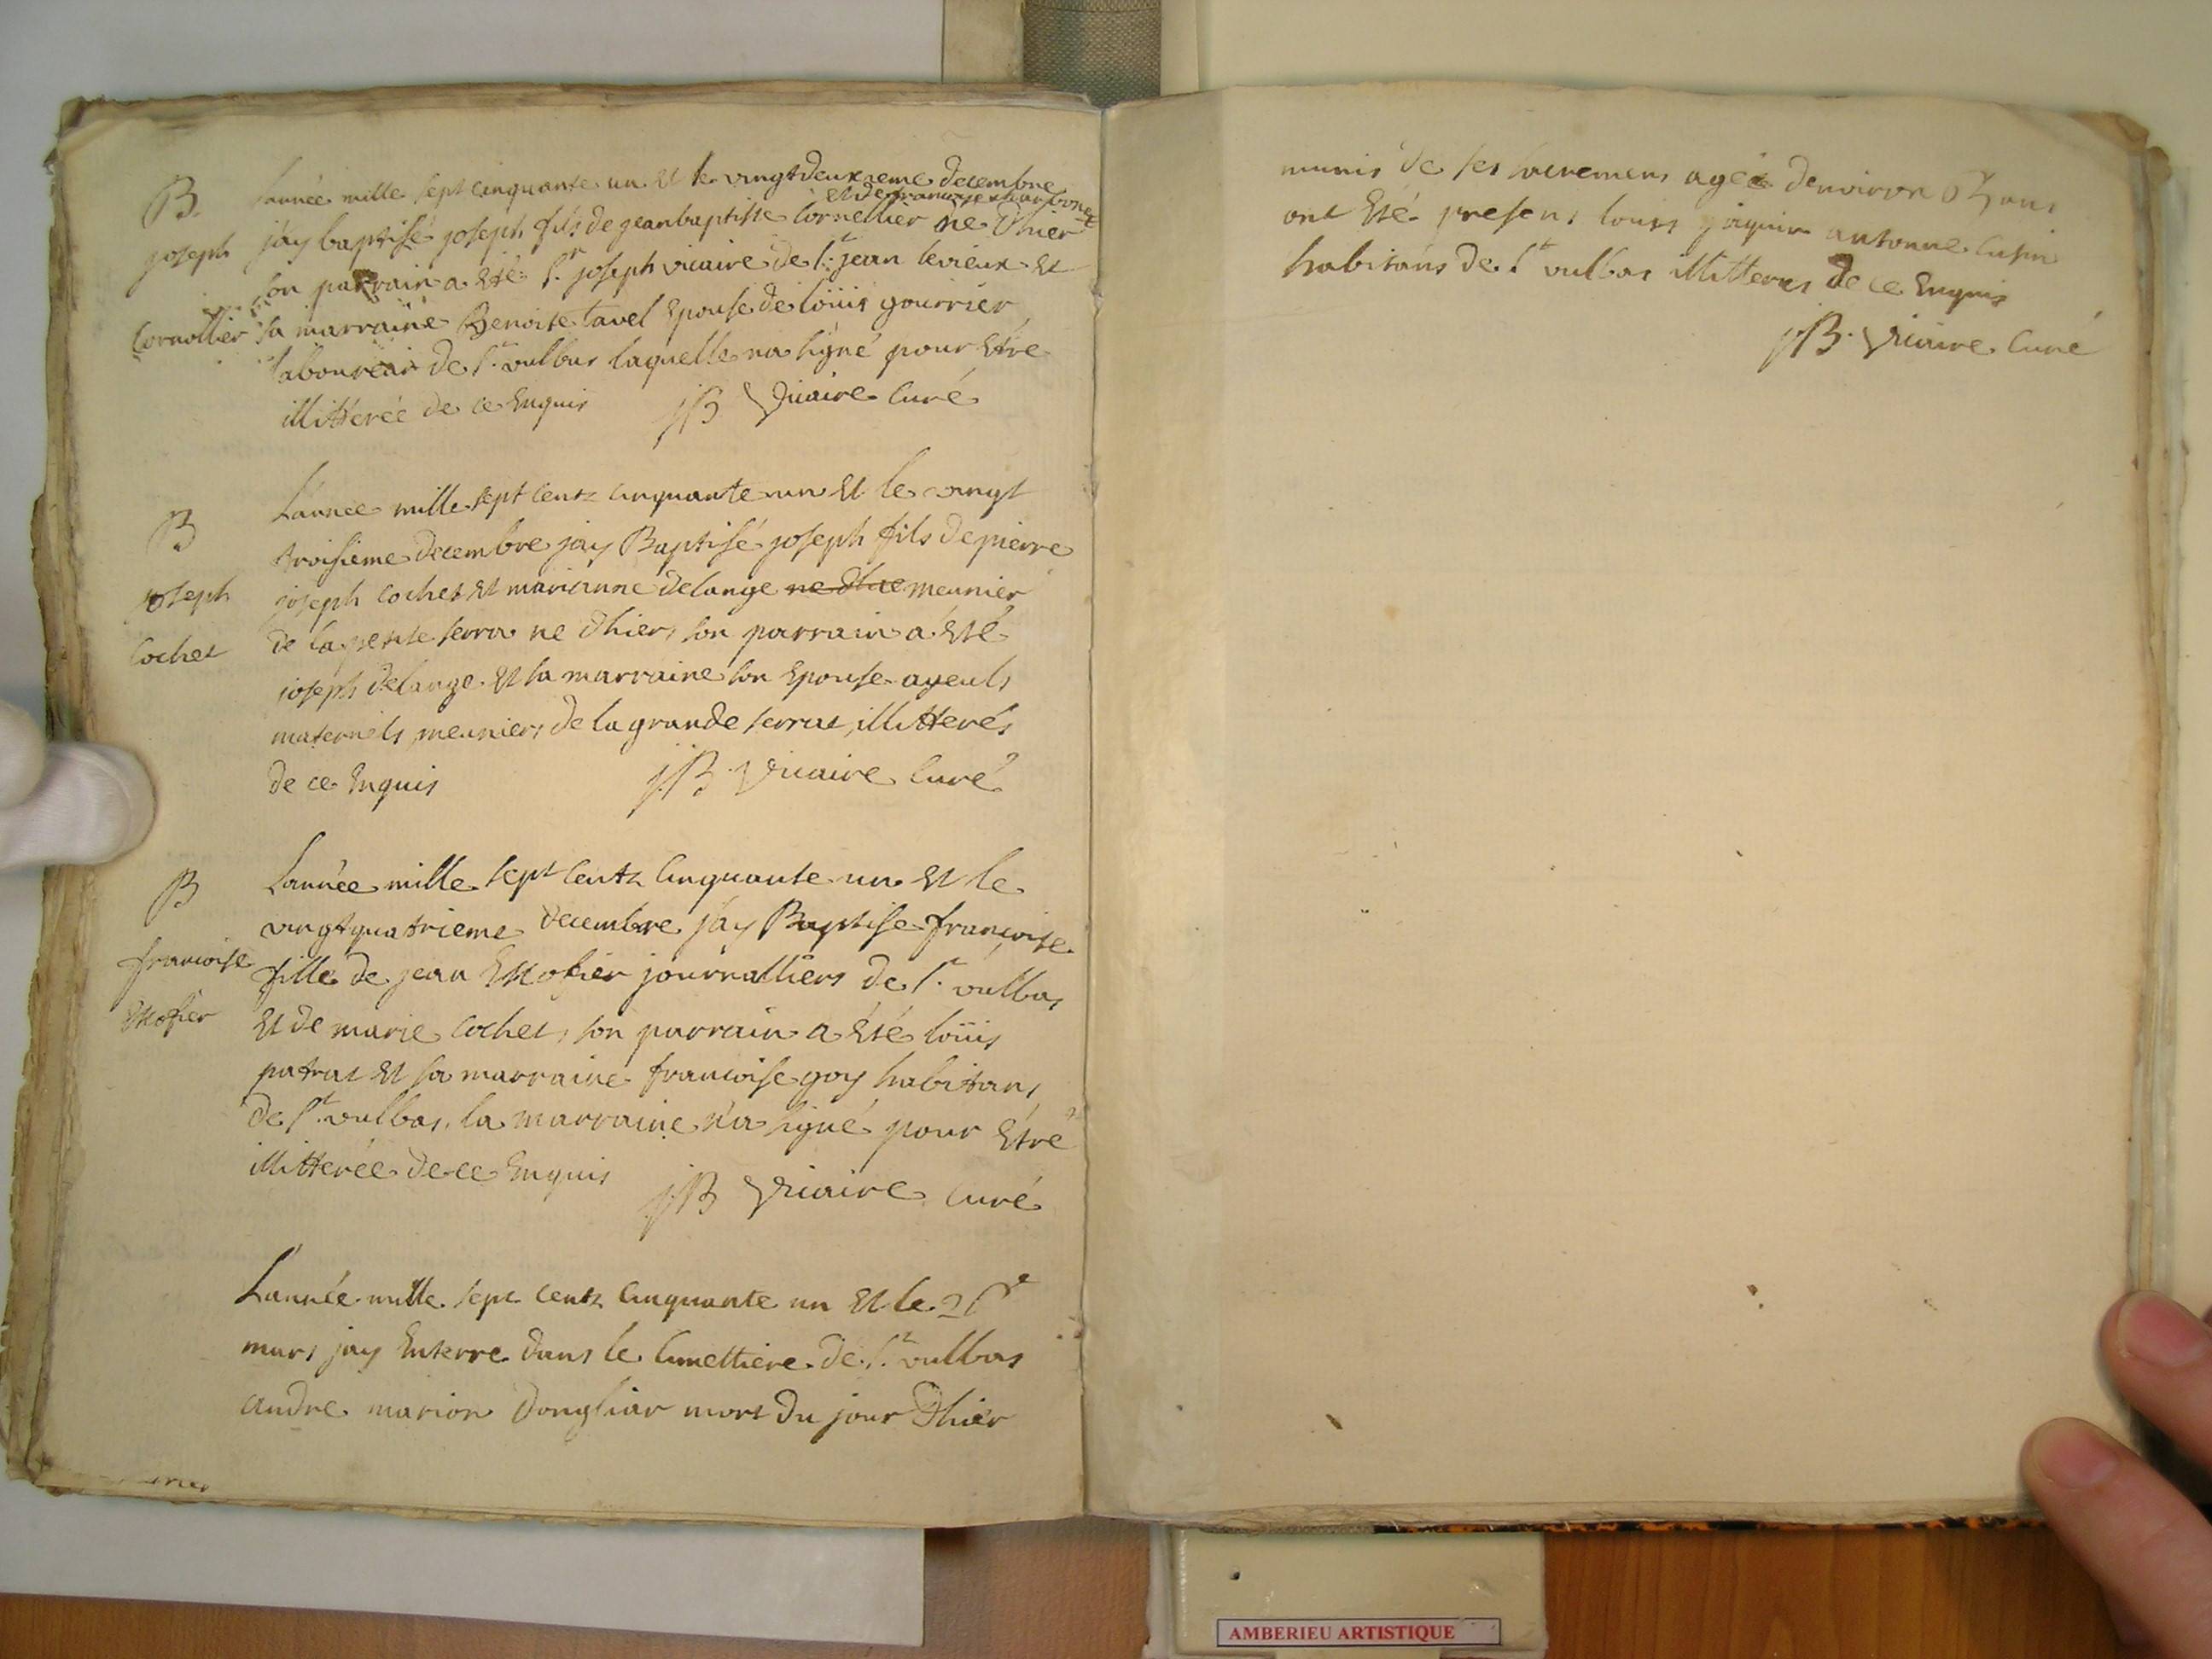 B.
joseph
Cornollier
Lannée mille sept cinquante un et le vingtdeuxieme decembre
et de francoise charvonet
j'ay baptisé joseph fils de jeanbaptiste Cornellier ne d'hier
son parrain a eté sr joseph vicaire de st jean levieux et
sa marraine Benoite tavel epouse de loüis gourrier
laboureur de st vulbas laquelle na signé pour être
illitterée de ce enquis
jB Vicaire Curé
B
joseph
Cochet
Lannee mille sept centz cinquante un et le vingt
troisieme decembre jay Baptisé joseph fils de pierre
joseph Cochet et marianne delange ne d'hier meunier
de la petite serra ne d'hier, son parrain a eté
joseph delange et sa marraine son epouse ayeuls
maternels meuniers de la grande serraz, illitterés
de ce enquis
jB Vicaire Curé
B
francoise
Escofier
Lannée mille sept centz cinquante un et le
vingtquatrieme decembre j'ay Baptise francoise
fille de jean Escofier journalliers de st vulbas
et de marie Cochet, son parrain a eté loüis
patrat et sa marraine francoise goy habitans
de st vulbas, la marraine n'a signé pour être
illitterée de ce enquis
jB Vicaire Curé
Lannée mille sept centz cinquante un et le
mars jay enterre dans le cimettiere de st vulbas
andre marion mort du jour d'hier
munis de ses sacremens agée denviron ans
ont eté presens louis jaquin antoine cusin
habitans de st vulbas illitterés de ce enquis
jB. Vicaire Curé
AMBERIEU ARTISTIQUE